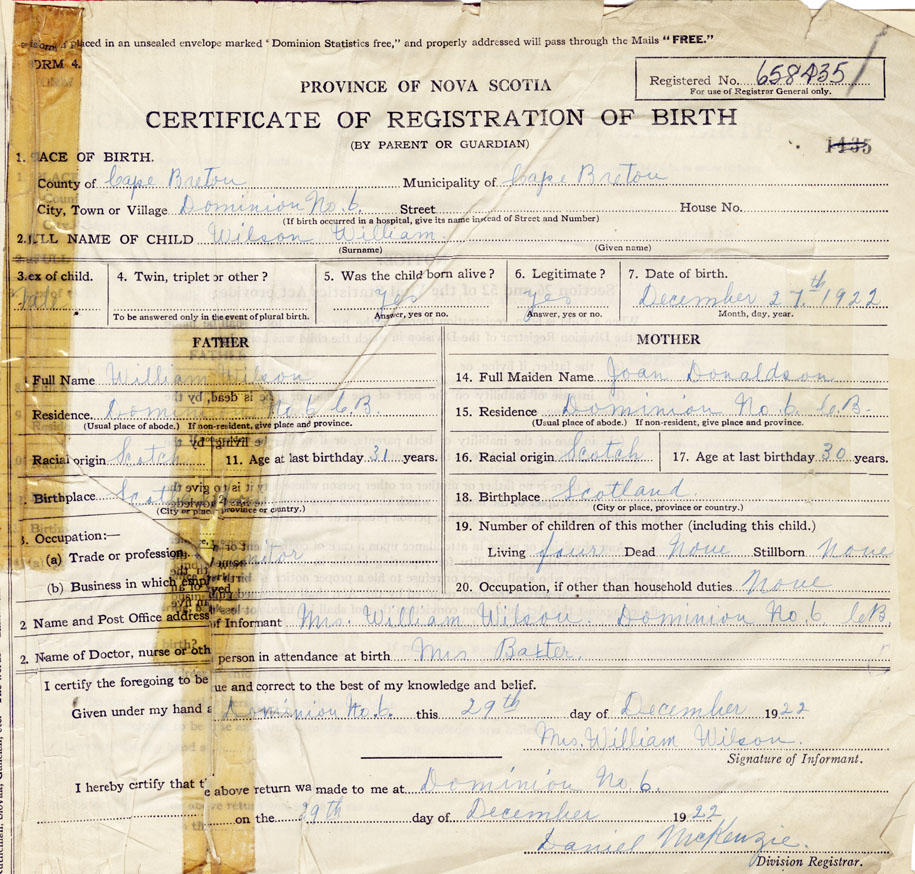 placed in an unsealed envelope marked "Dominion Statistics free," and properly addressed will pass through the Mails "FREE."
ORM 4.
Registered No. 658435
For use of Registrar General only.
PROVINCE OF NOVA SCOTIA
CERTIFICATE OF REGISTRATION OF BIRTH
(BY PARENT OR GUARDIAN)
1435
1. ACE OF BIRTH.
County of Cape Breton Municipality of Cape Breton
City, Town or Village Dominion No. 6. Street House No.
(If birth occurred in a hospital, give its name instead of Street and Number)
2. LL NAME OF CHILD Wilson William.
(Surname) (Given name)
3. ex of child. 4. Twin, triplet or other? 5. Was the child born alive? 6. Legitimate? 7. Date of birth.
yes yes December 27th 1922
To be answered only in the event of plural birth. Answer, yes or no. Answer, yes or no. Month, day, year.
FATHER MOTHER
Full Name William Wilson 14. Full Maiden Name Joan Donaldson
Residence Dominion No 6 C.B. 15. Residence Dominion No. 6 C.B.
(Usual place of abode.) If non-resident, give place and province. (Usual place of abode.) If non-resident, give place and province.
Racial origin Scotch 11. Age at last birthday 31 years. 16. Racial origin Scotch 17. Age at last birthday 30 years.
Birthplace 18. Birthplace Scotland
(City or place, province or country.) (City or place, province or country.)
Occupation:— 19. Number of children of this mother (including this child.)
(a) Trade or profession Living four Dead None Stillborn None
(b) Business in which empl yed 20. Occupation, if other than household duties None
2 Name and Post Office address of Informant Mrs. William Wilson. Dominion No. 6 C.B.
2. Name of Doctor, nurse or oth person in attendance at birth Mrs Baxter.
I certify the foregoing to be ue and correct to the best of my knowledge and belief.
Given under my hand a Dominion No. 6. this 29th day of December 1922
Mrs. William Wilson.
Signature of Informant.
I hereby certify that t e above return wa made to me at Dominion No 6.
on the 29th day of December 1922
Daniel McKenzie.
Division Registrar.